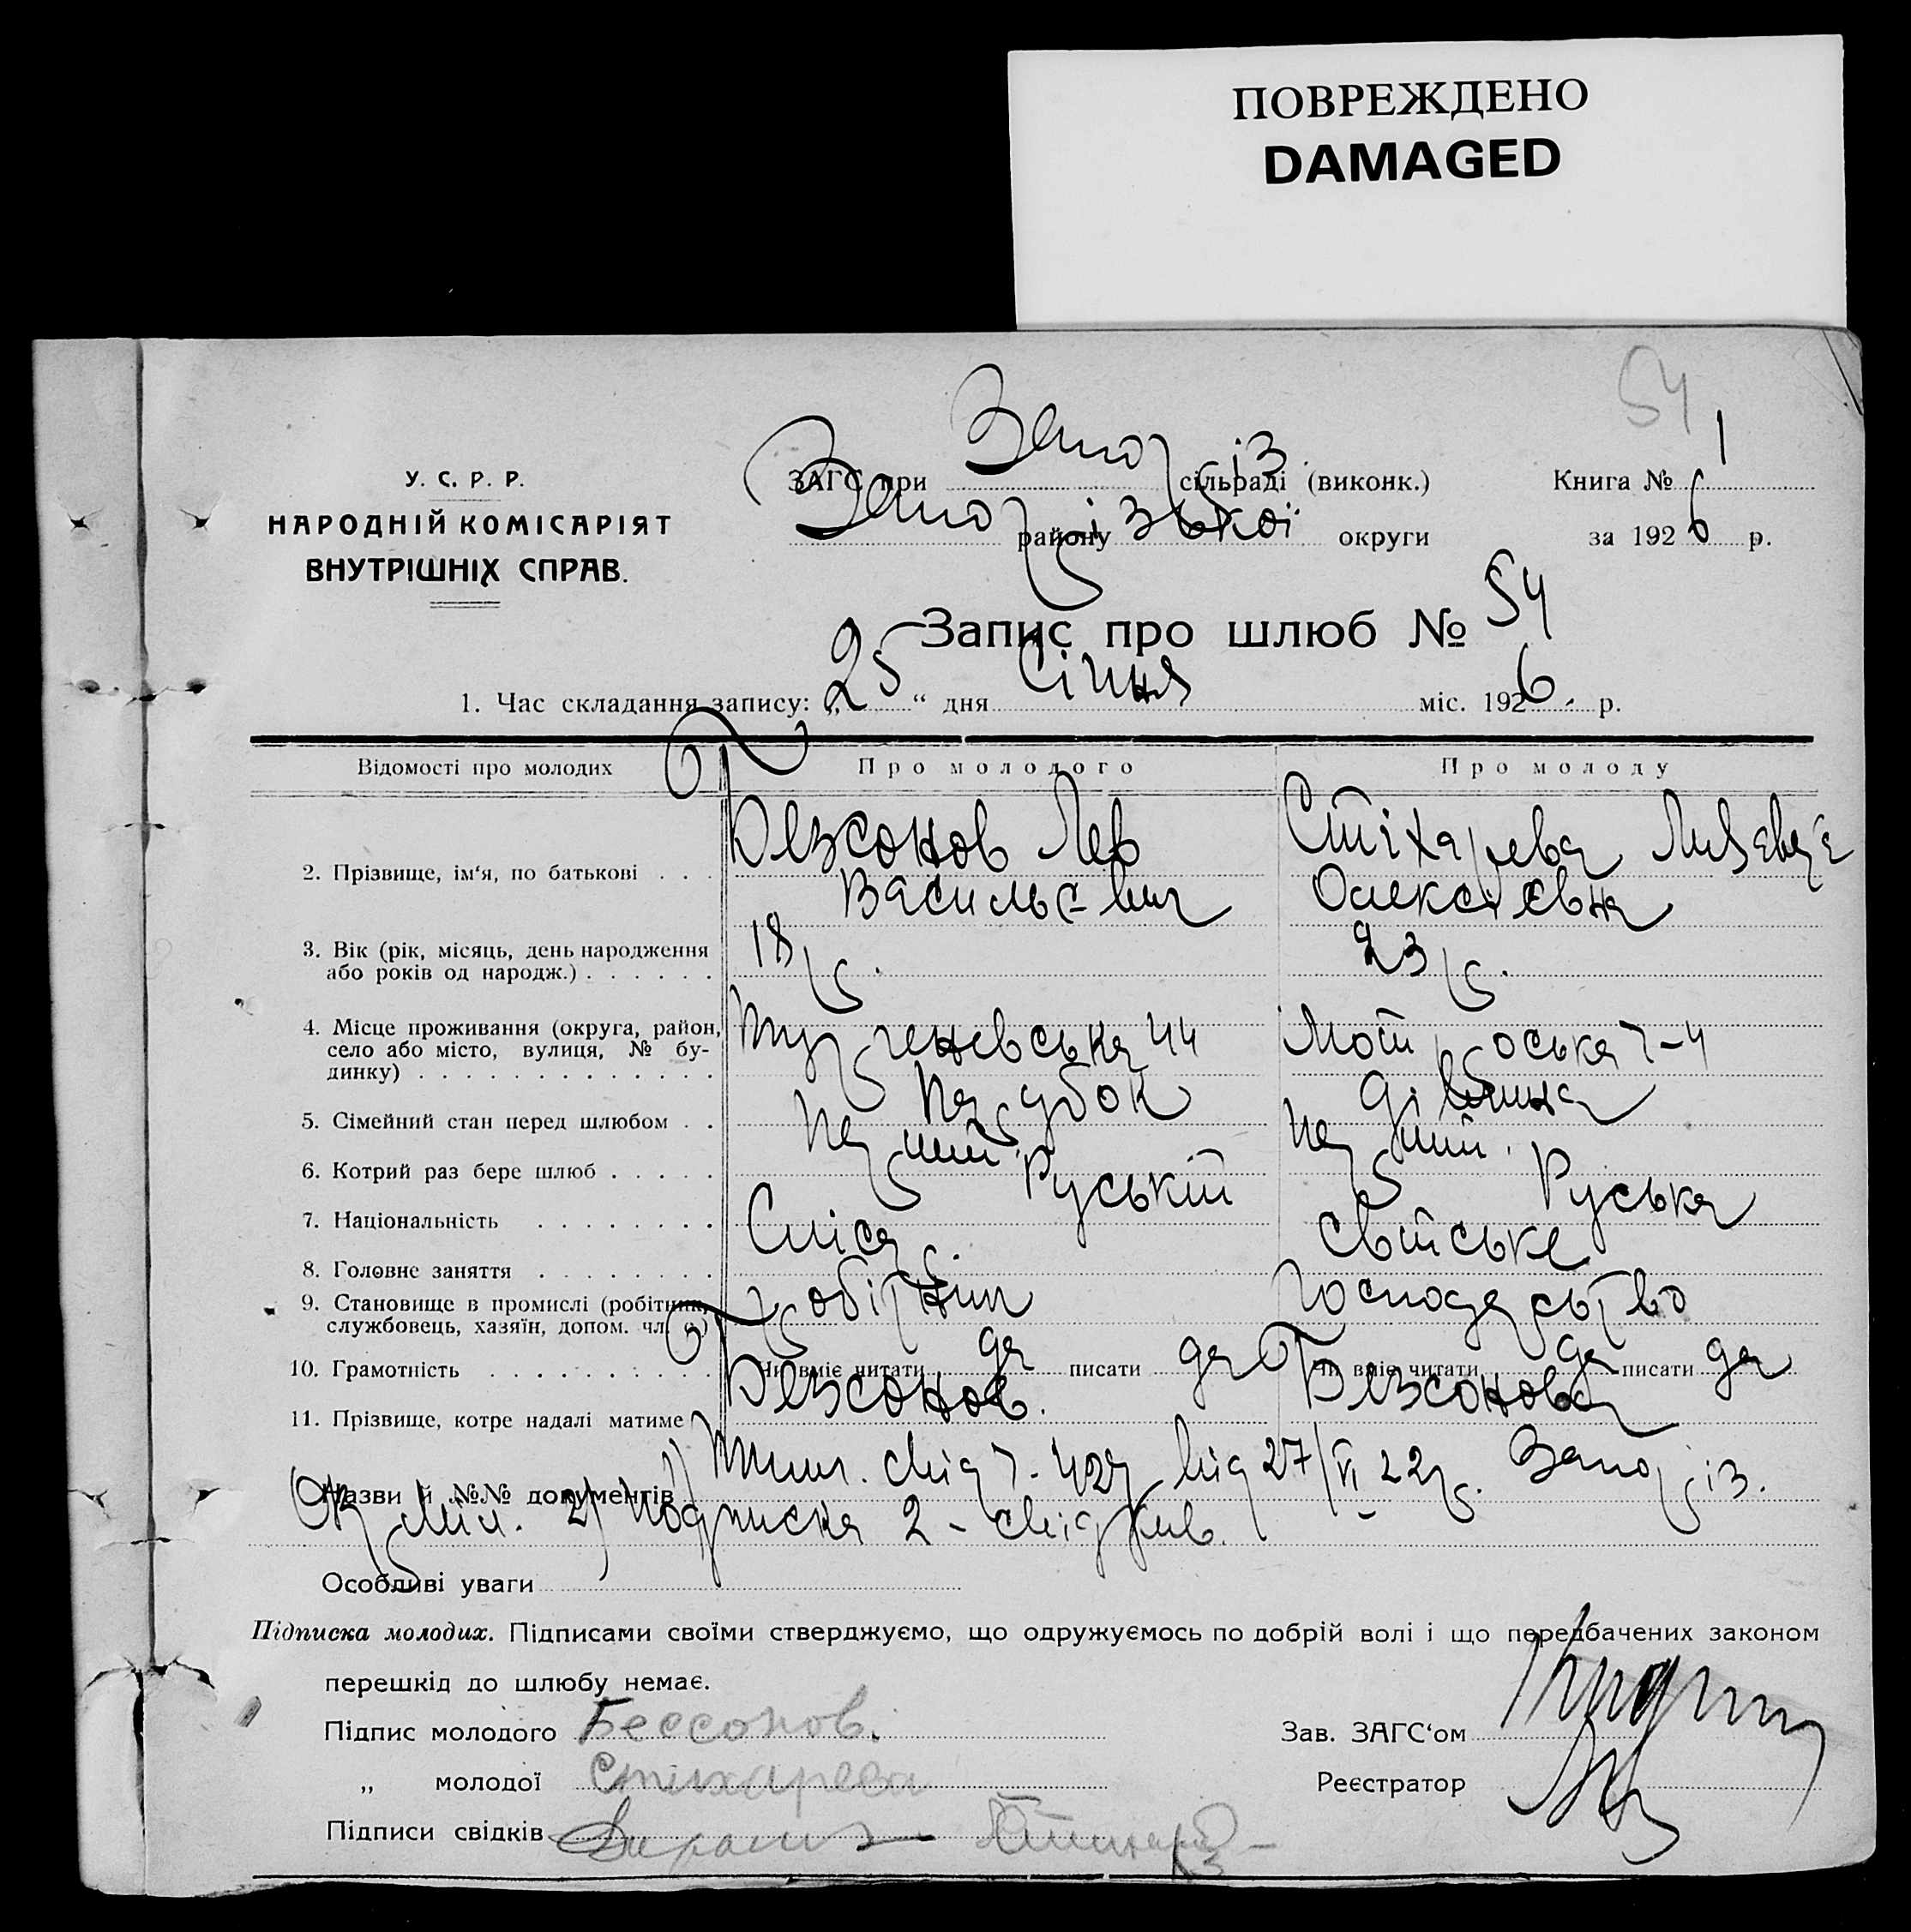 ПОВРЕЖДЕНО
DAMAGED
54
У. С. Р. Р.
НАРОДНІЙ КОМІСАРІЯТ
ВНУТРІШНІХ СПРАВ.
ЗАГС при Запоріз. сільраді (виконк.)
Запорізької району округи
Книга № 1
за 1926 р.
Запис про шлюб № 54
1. Час складання запису: „25“ дня Січня міс. 1926. р.
Відомості про молодих Про молодого Про молоду
2. Прізвище, ім'я, по батькові . . . Безсонов Лев Васильєвич Стіхарева Лизавета Олексієвна
3. Вік (рік, місяць, день народження або років од народж.) . . . . . . 18 р. 23 р.
4. Місце проживання (округа, район, село або місто, вулиця, № будинку) . . . . . . . . . . . . . Тургеневська 44 7-4
5. Сімейний стан перед шлюбом . . Парубок Дівчина
6. Котрий раз бере шлюб . . . . . Перший. Перший.
7. Національність . . . . . . . . Руській Руська
8. Головне заняття . . . . . . . . Слісар. свійське
9. Становище в промислі (робітник, службовець, хазяїн, допом. чл. с.) робітник господарство
10. Грамотність . . . . . . . . . . Чи вміє читати да писати да Чи вміє читати да писати да
11. Прізвище, котре надалі матиме Безсонов. Безсонова
Назви й №№ документів 1) свід 7. від 27/VI 22 р. Запоріз.
Окр міл. 2) Подписка 2 - свідків.
Особливі уваги
Підписка молодих. Підписами своїми стверджуємо, що одружуємось по добрій волі і що передбачених законом
перешкід до шлюбу немає.
Підпис молодого Бессонов.
„ молодої Стихарева
Підписи свідків
Зав. ЗАГС'ом
Реєстратор